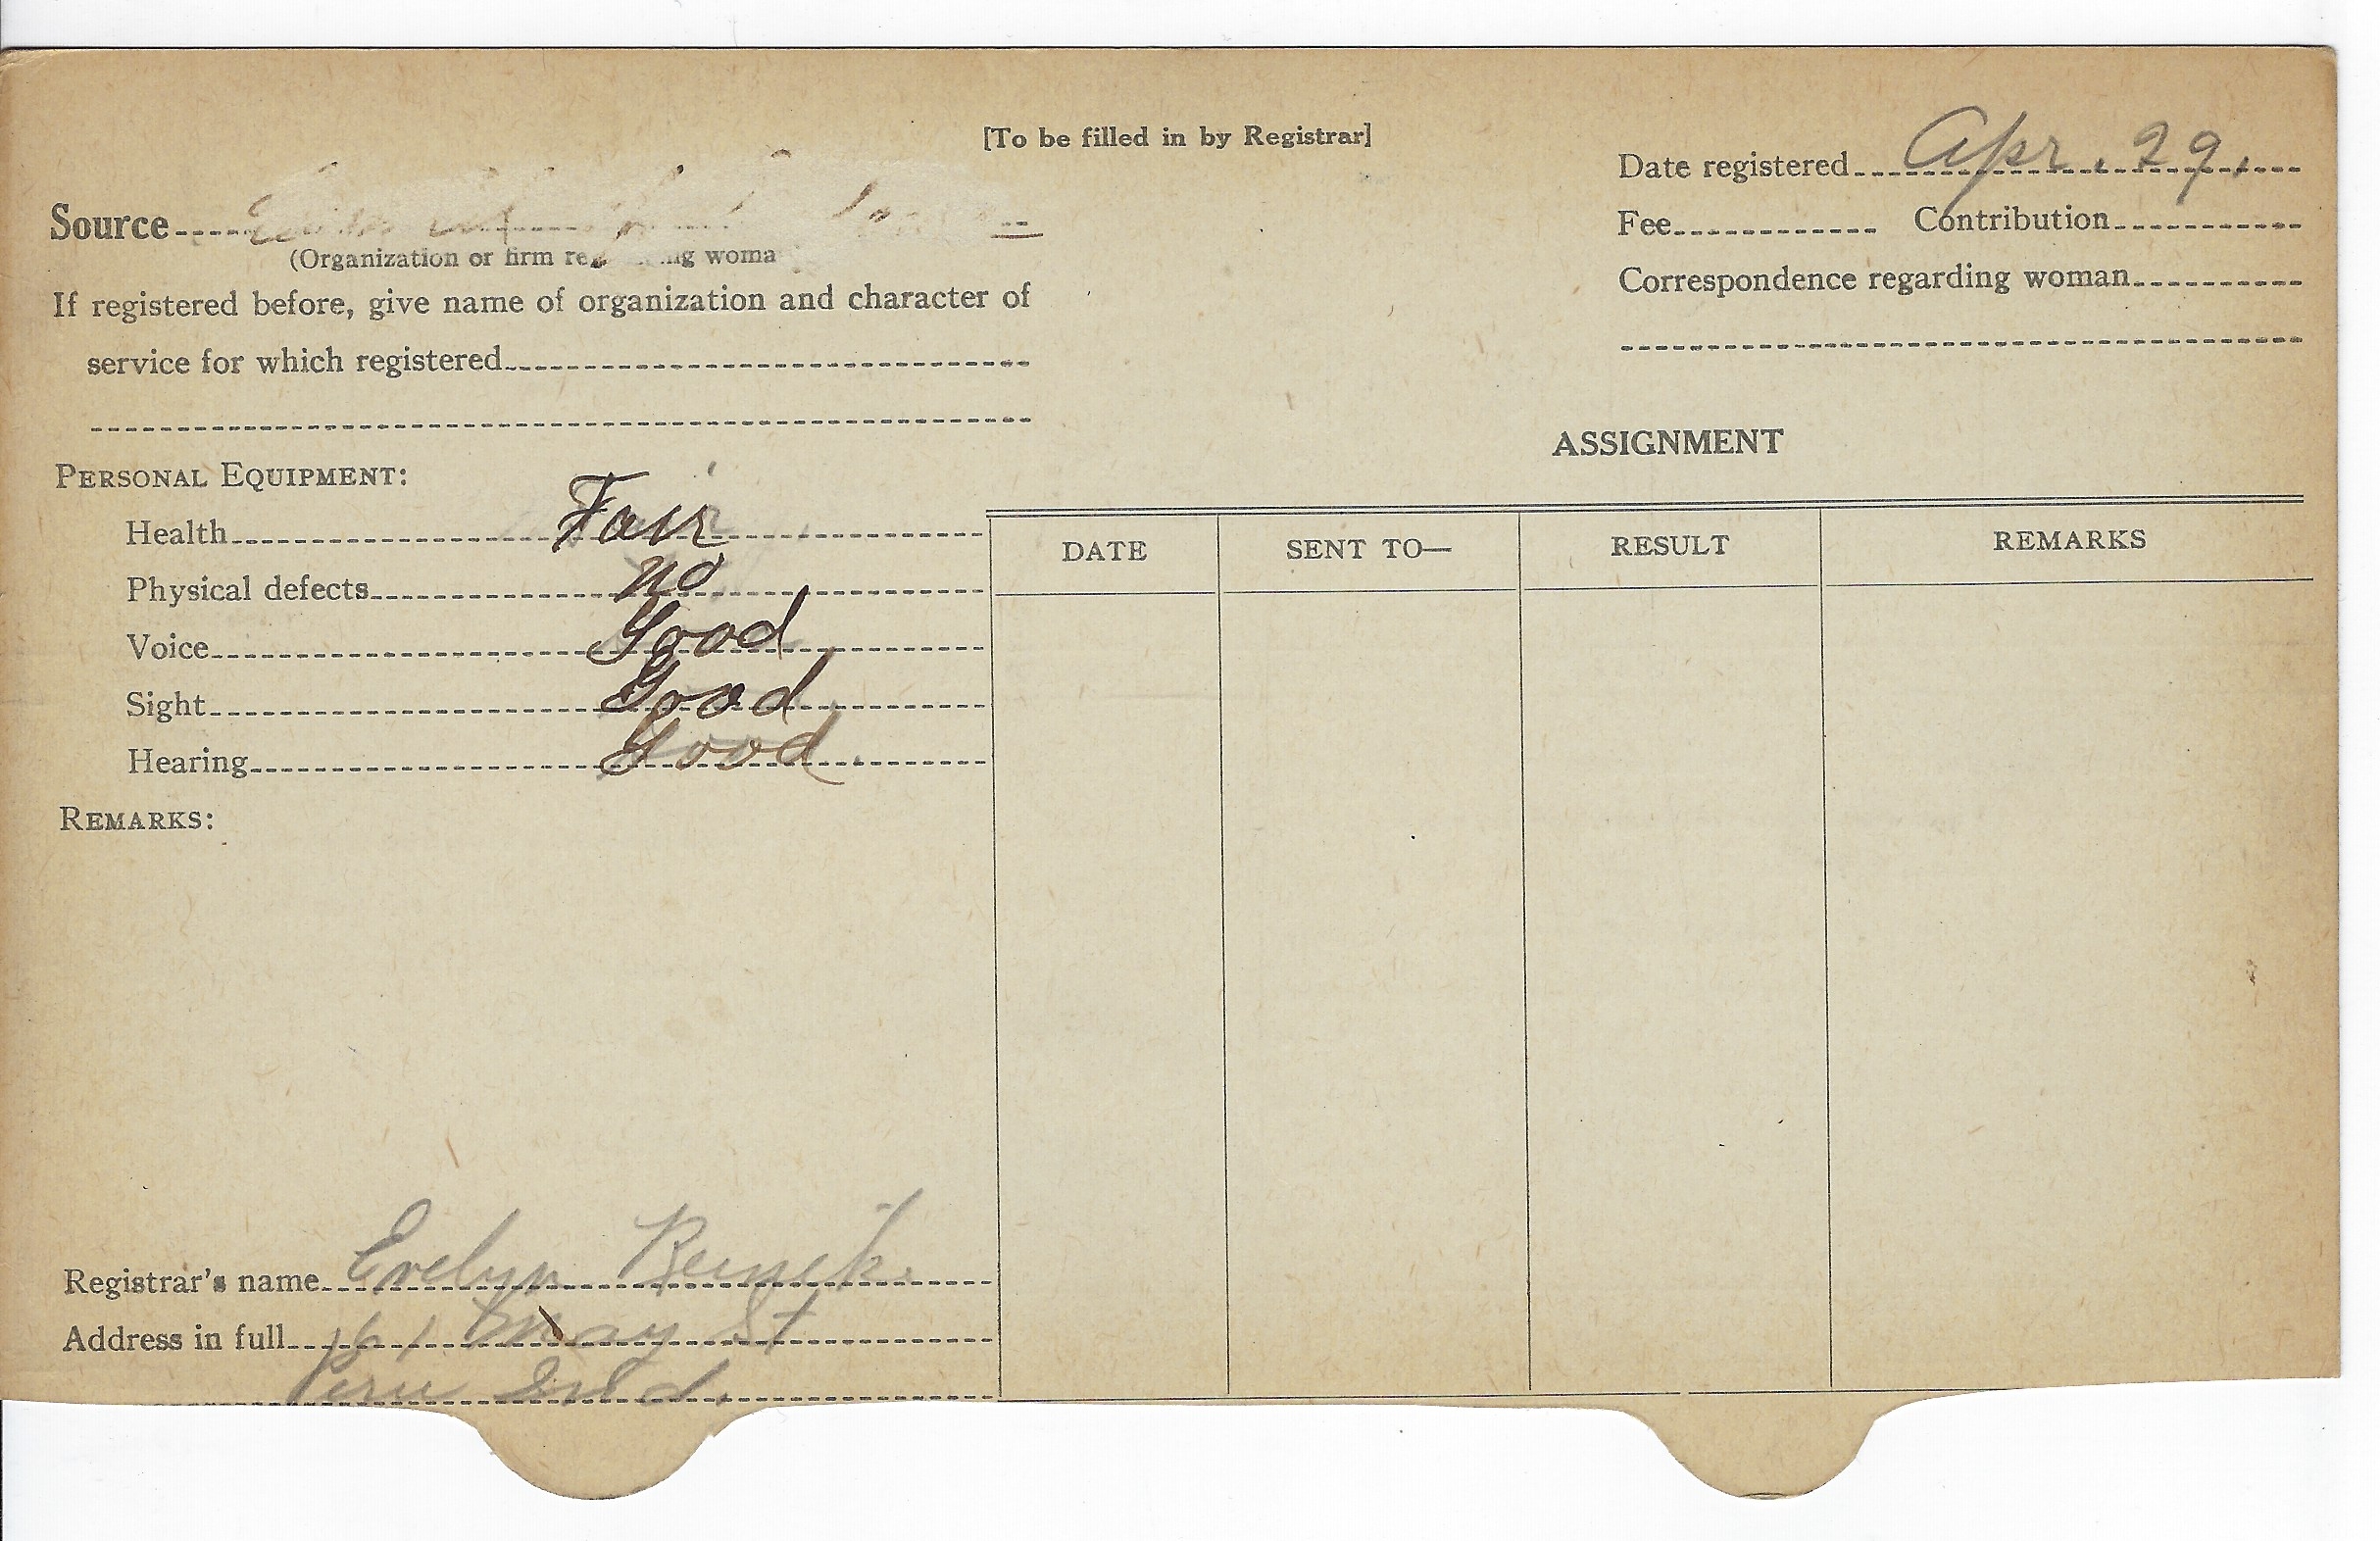 [To be filled in by Registrar]
Date registered Apr. 29,
Source
(Organization or firm reg ng woma
Fee Contribution
If registered before, give name of organization and character of
service for which registered
Correspondence regarding woman
ASSIGNMENT
PERSONAL EQUIPMENT:
Health Fair
Physical defects no
Voice Good
Sight Good
Hearing Good
DATE SENT TO— RESULT REMARKS
REMARKS:
Registrar's name Evelyn
Address in full 161 May St
Peru Ind.